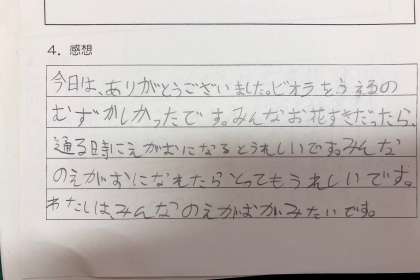 4. 感想
今日は、ありがとうございました。ビオラをうえるの
むずかしかったです。みんなお花すきだったら、
通る時にえがおになるとうれしいです。みんな
のえがおになれたらとってもうれしいです。
わたしは、みんなのえがおがみたいです。